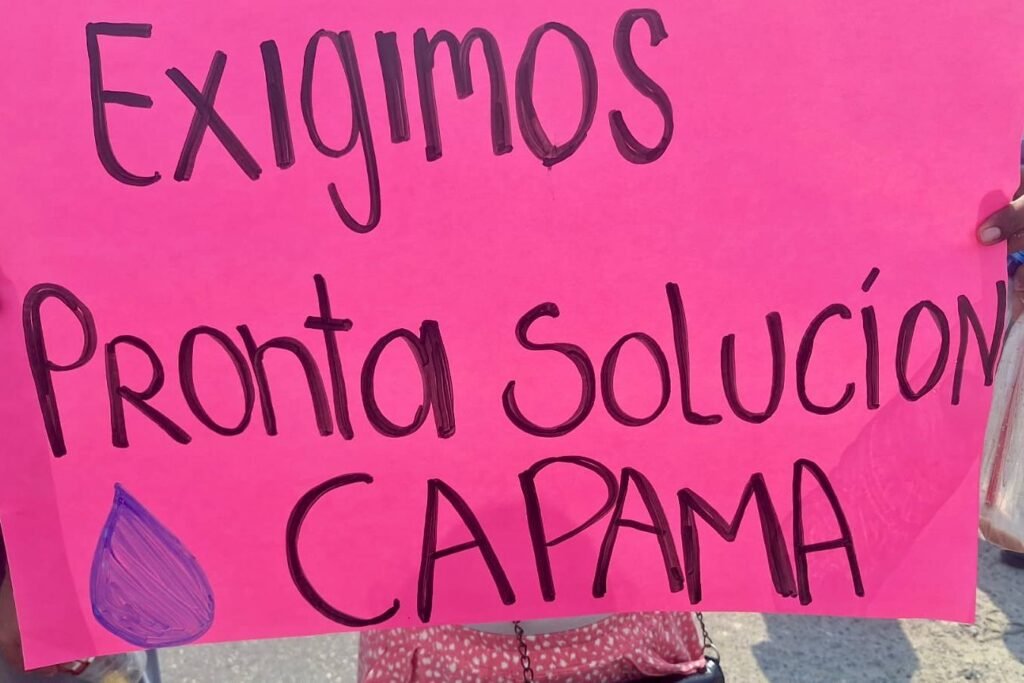 Exigimos
Pronta Solución
CAPAMA